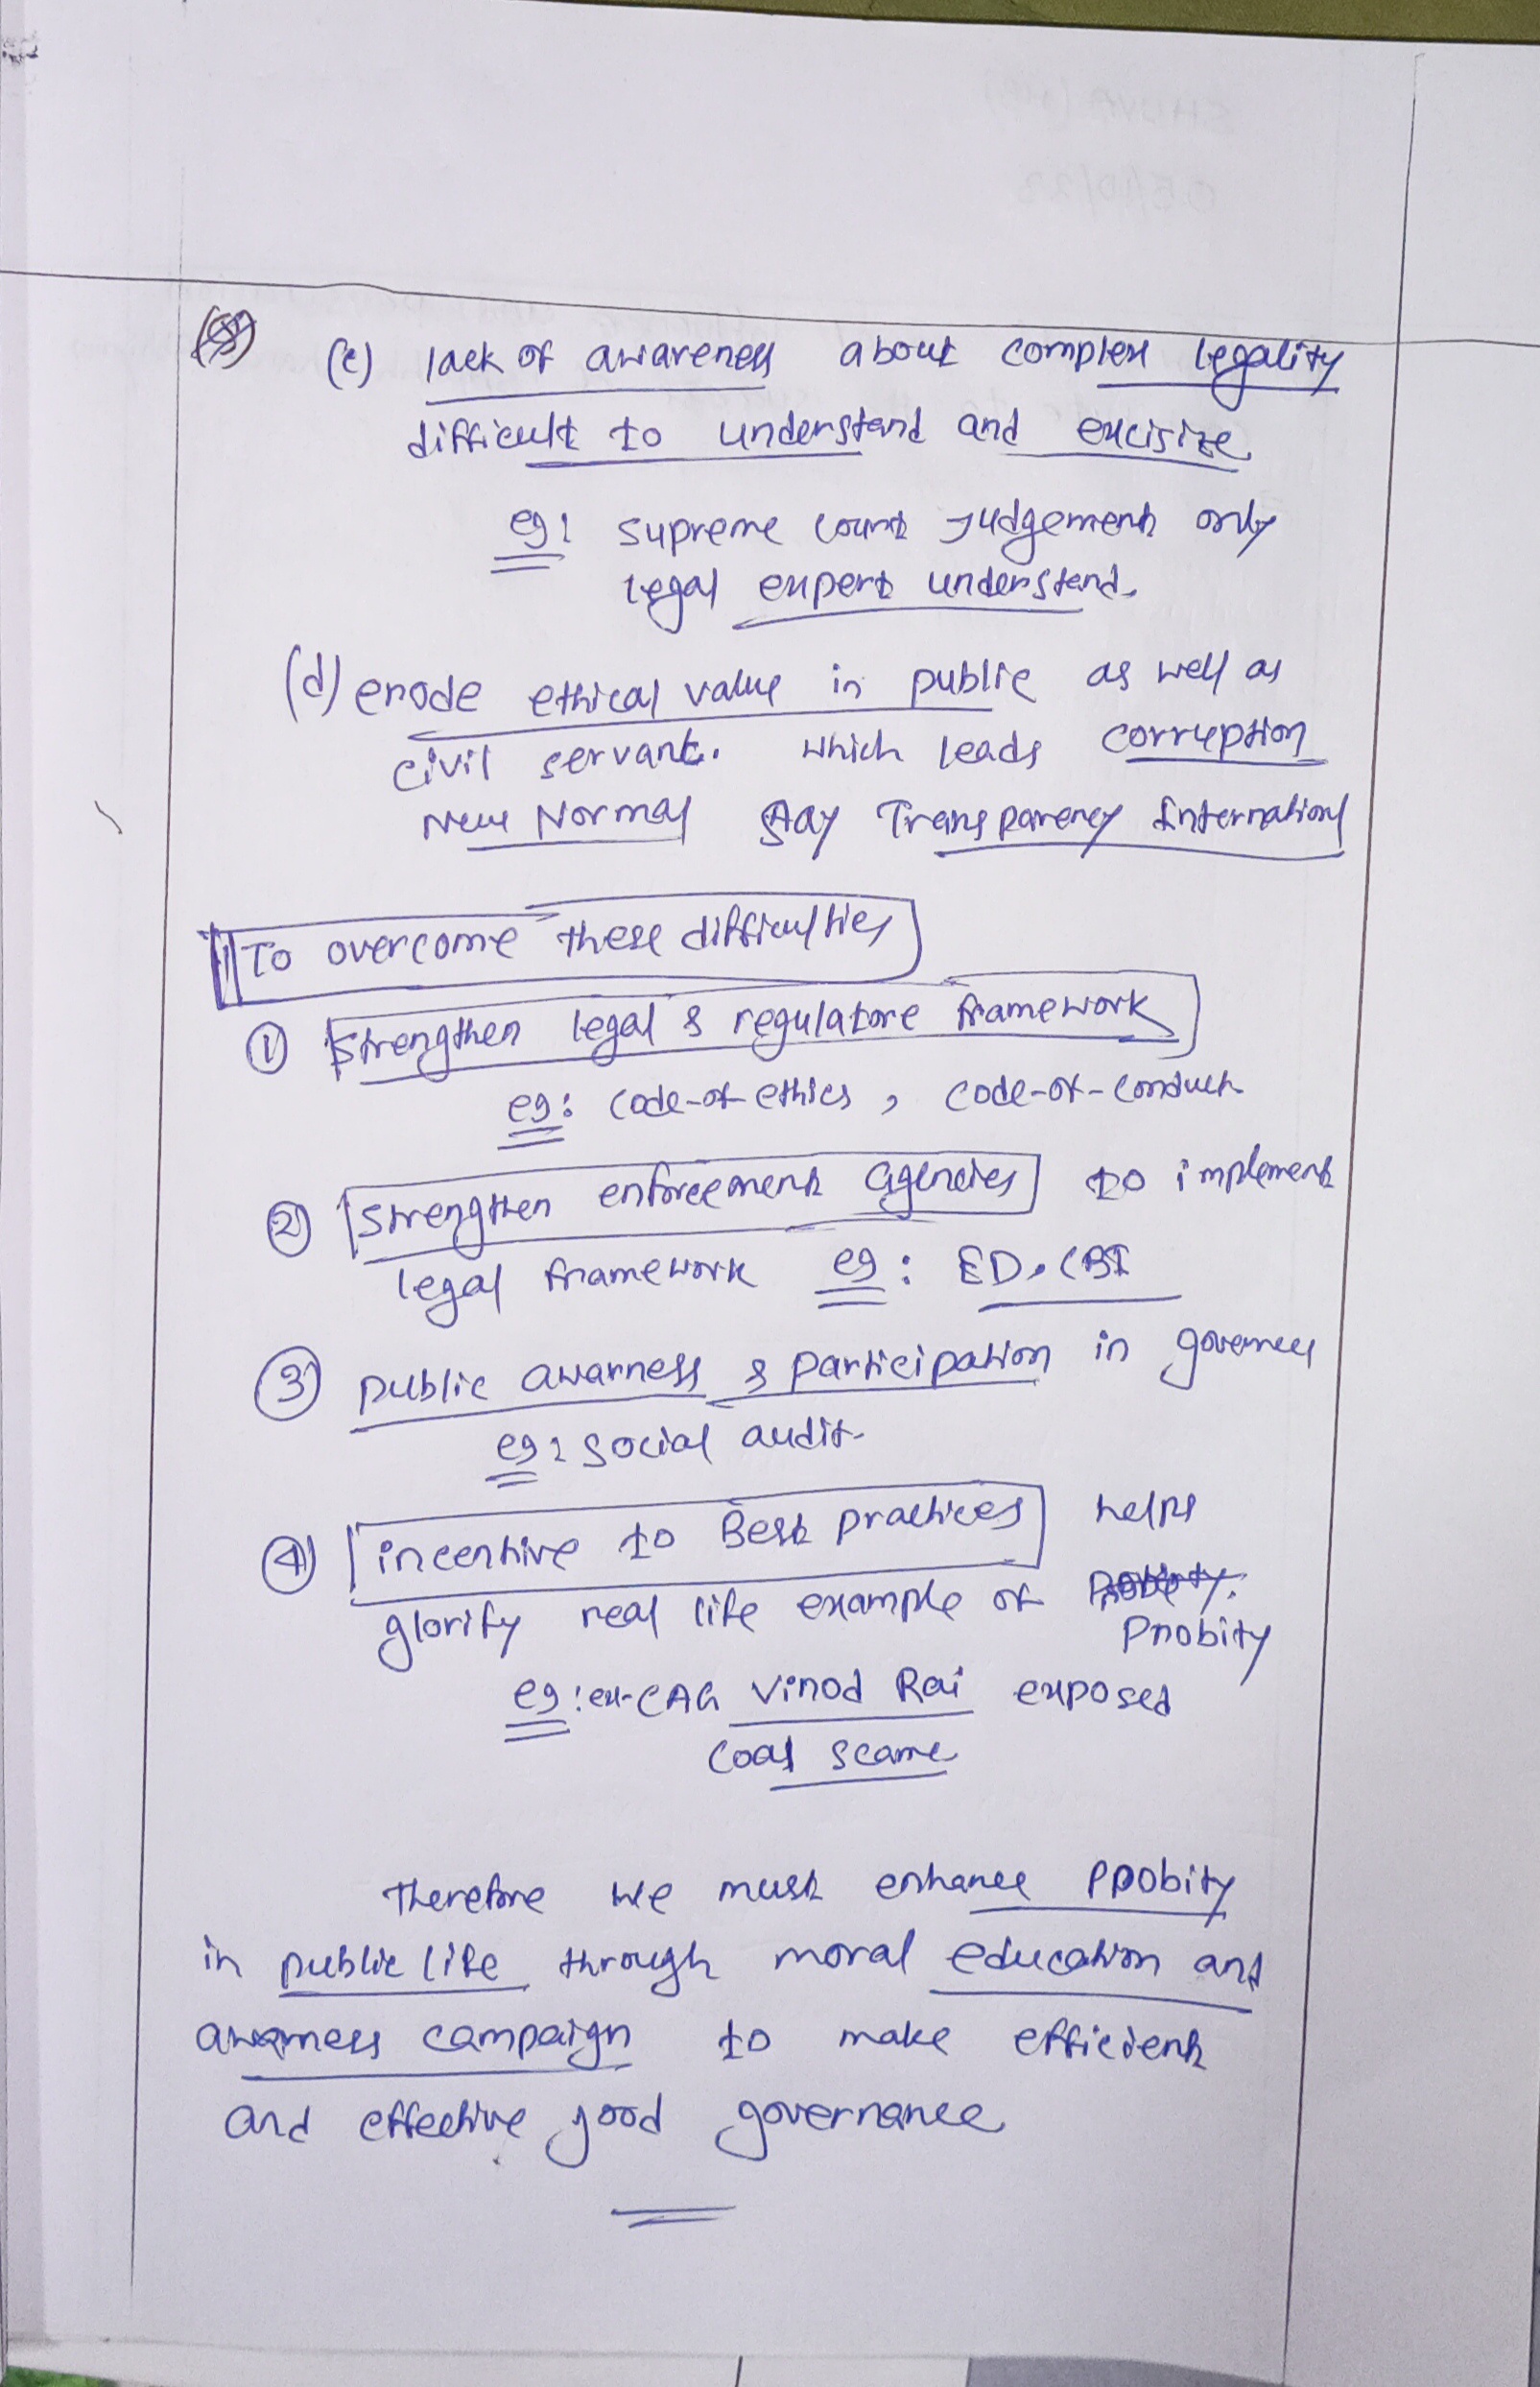 (c) lack of awareness about complex legality
difficult to understand and excisize
eg: supreme court Judgement only
legal expert understand.
(d) erode ethical value in public as well as
civil servant. which leads corruption
New Normal say Transparency International
To overcome these difficulties
① Strengthen legal & regulatore framework
eg: code-of-ethics, code-of-conduct
② Strengthen enforcement agencies to implement
legal framework eg: ED, CBI
③ public awarness & participation in governce
eg: social audit
④ incentive to Best practices helps
glorify real life example of
Probity
eg: ex-CAG Vinod Rai exposed
Coal scame
Therefore we must enhance probity
in public life through moral education and
awarness campaign to make efficient
and effective good governance